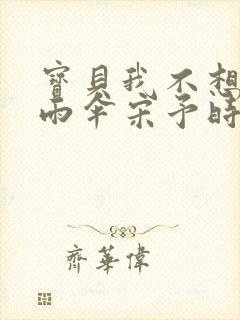 寶貝我不想
雨伞宋予時
齊華偉